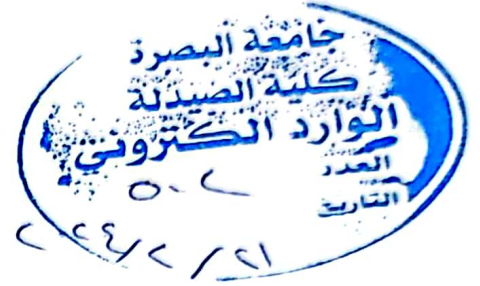 جامعة البصرة
كلية الصيدلة
الوارد الكتروني
العدد
٥٠٢
التاريخ
٢٠٢٤/٢/٢١